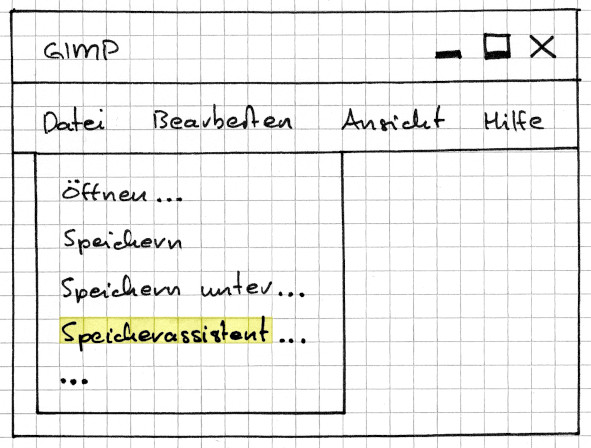 GIMP
Datei Bearbeiten Ansicht Hilfe
Öffnen ...
Speichern
Speichern unter ...
Speicherassistent ...
...